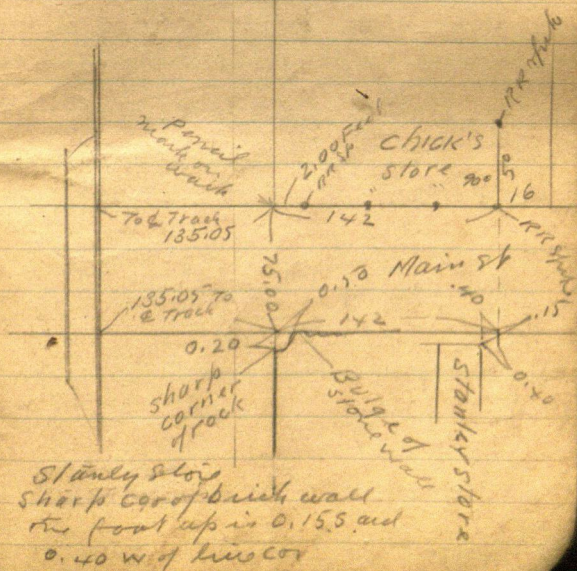 RR Spike
Pencil
mark on
Walk
2.00 Feet
RR SP
Chick's
Store
90°
50
16
To ₵ Track
135.05
142
RR Spike
75.00
0.50
Main St
.40
.15
135.05 To
₵ Track
142
0.20
0.40
Sharp
corner
of rock
Bulge of
Stone Wall
Stanley Store
Stanly Store
Sharp cor of brick wall
one foot up is 0.15 S and
0.40 W of line cor